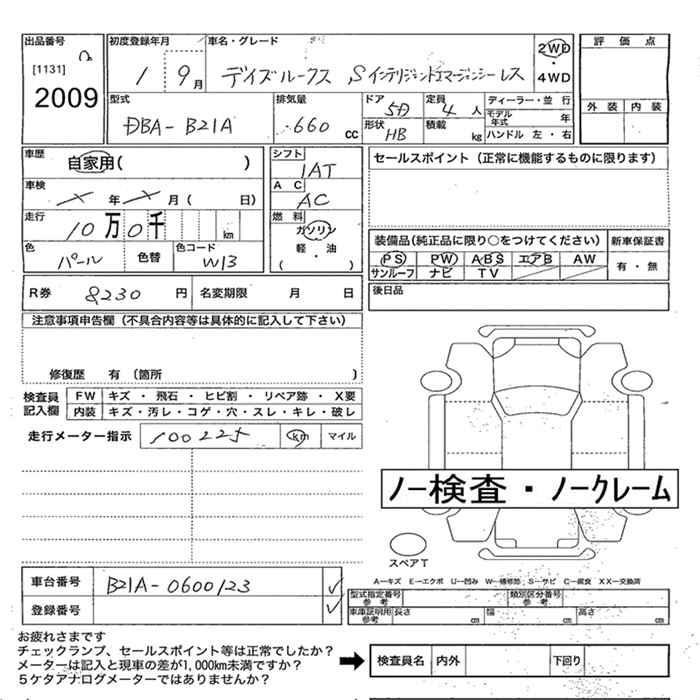 出品番号
[1131]
2009
初度登録年月
1 9月
車名・グレード
デイズルークス Sインテリジェントエマージェンシーレス
2WD
・
4WD
評価点
外装 内装
型式
DBA-B21A
排気量
660 cc
ドア 5D
形状 HB
定員 4 人
積載 kg
ディーラー・並行
モデル年式 年
ハンドル 左・右
車歴
自家用( )
車検
年 月 ( 日)
走行
10万0千 km
色
パール
色替
色コード
W13
シフト
IAT
AC
AC
燃料
ガソリン
軽・油
( )
セールスポイント(正常に機能するものに限ります)
装備品(純正品に限り○をつけてください)
PS PW ABS エアB AW
サンルーフ ナビ TV
新車保証書
有・無
後日品
R券 8230 円
名変期限 月 日
注意事項申告欄(不具合内容等は具体的に記入して下さい)
修復歴 有〔箇所 〕
検査員記入欄
FW キズ・飛石・ヒビ割・リペア跡・X要
内装 キズ・汚レ・コゲ・穴・スレ・キレ・破レ
走行メーター指示 100225 km マイル
ノー検査・ノークレーム
スペアT
A-キズ E-エクボ U-凹み W-補修跡 S-サビ C-腐食 XX-交換済
車台番号 B21A-0600123
登録番号
型式指定番号 参考
類別区分番号 参考
車庫証明用 参考 長さ cm 幅 cm 高さ cm
お疲れさまです
チェックランプ、セールスポイント等は正常でしたか?
メーターは記入と現車の差が1,000km未満ですか?
5ケタアナログメーターではありませんか?
検査員名 内外 下回り